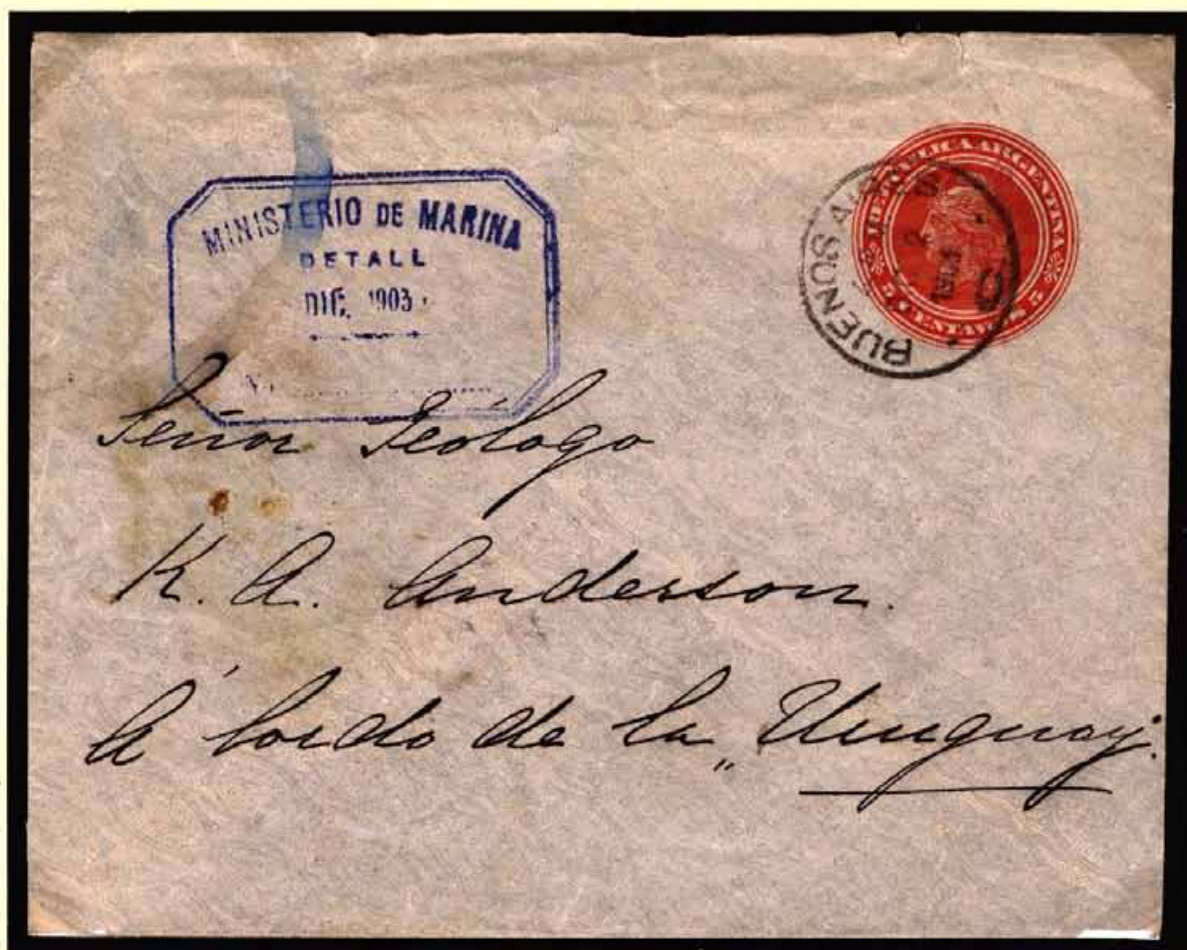 MINISTERIO DE MARINA
DETALL
DIC. 1903
REPUBLICA ARGENTINA
2 CENTAVOS 2
BUENOS AIRES
2
1903
Señor Geólogo
K. A. Anderson.
Á bordo de la „Uruguay".